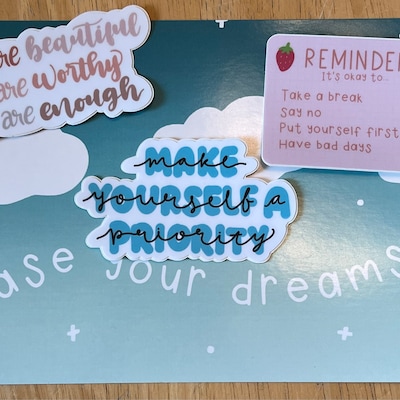 are beautiful
are worthy
are enough
REMINDER
It's okay to...
Take a break
Say no
Put yourself first
Have bad days
MAKE
make
YOURSELF A
yourself a
PRIORITY
priority
ase your dreams